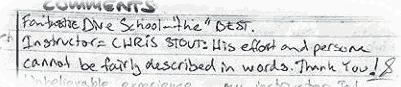 COMMENTS
Fantastic Dive School - "the" BEST.
Instructor = CHRIS STOUT: His effort and persona
cannot be fairly described in words. Thank You!
Unbelievable experience my instructor